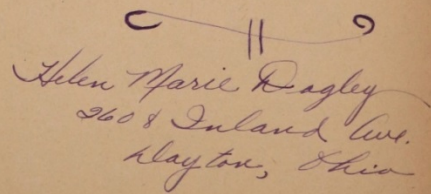 Helen Marie Dagley
2608 Inland Ave.
Dayton, Ohio